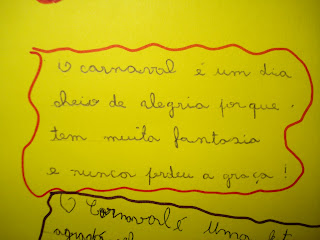 O carnaval é um dia
cheio de alegria porque.
tem muita fantasia
e nunca perdeu a graça!
O Carnaval é uma